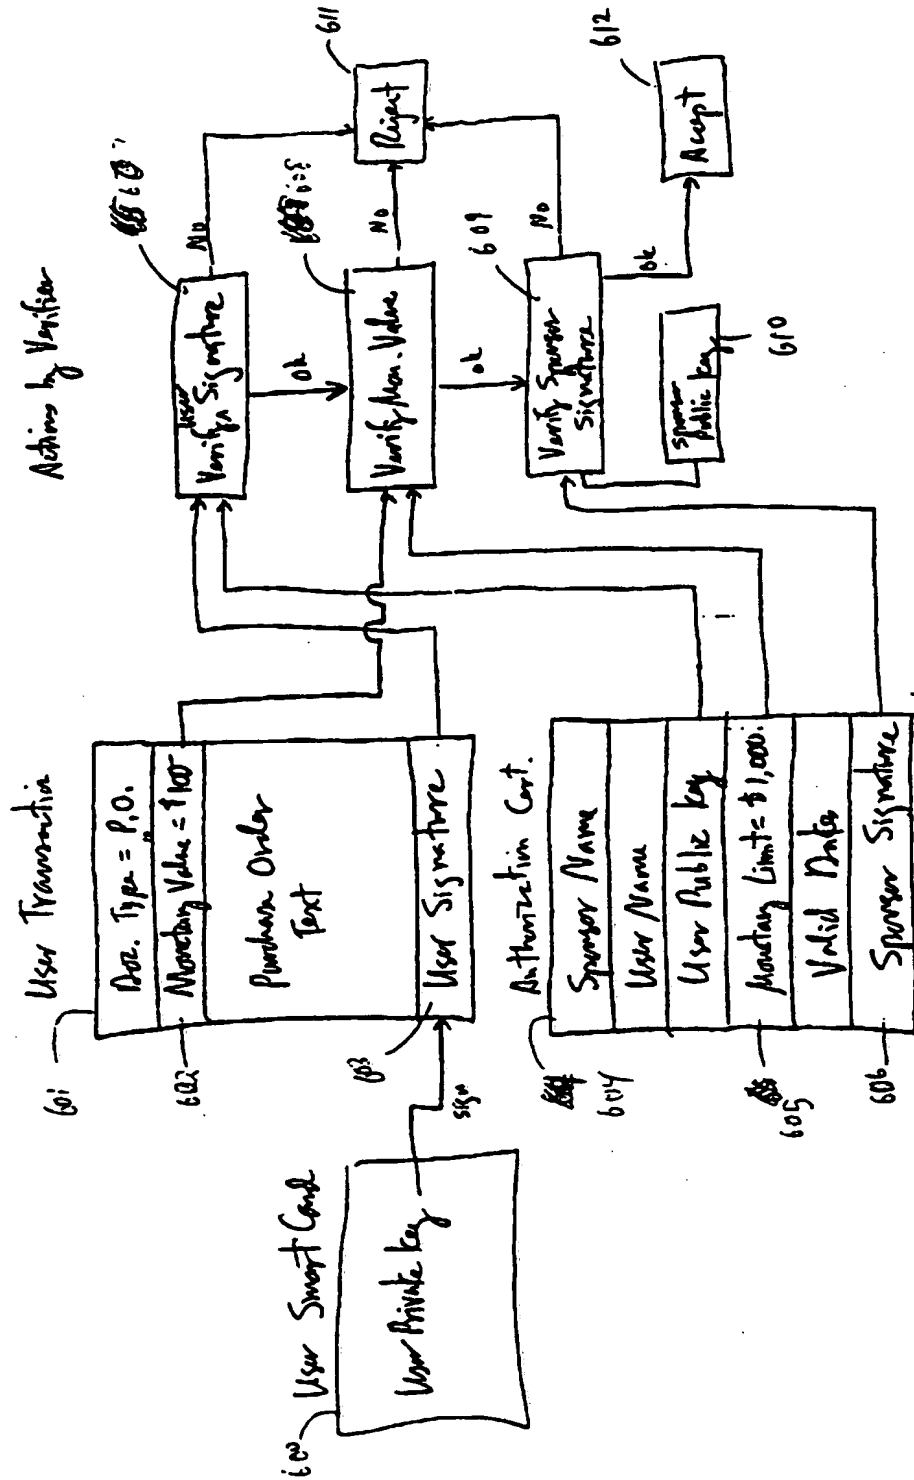 User Smart Card
600
User Private Key
sign
User Transaction
601
Doc. Type = P.O.
602
Monetary Value = $100
Purchase Order
Text
603
User Signature
Authorization Cert.
604
Sponsor Name
User Name
User Public Key
605
Monetary Limit = $1,000.
Valid Dates
606
Sponsor Signature
Actions by Verifier
User
Verify Signature
No
OK
Verify Mon. Value
No
OK
609
Verify Sponsor
Signature
No
OK
Sponsor
Public Key
610
Reject
611
Accept
612